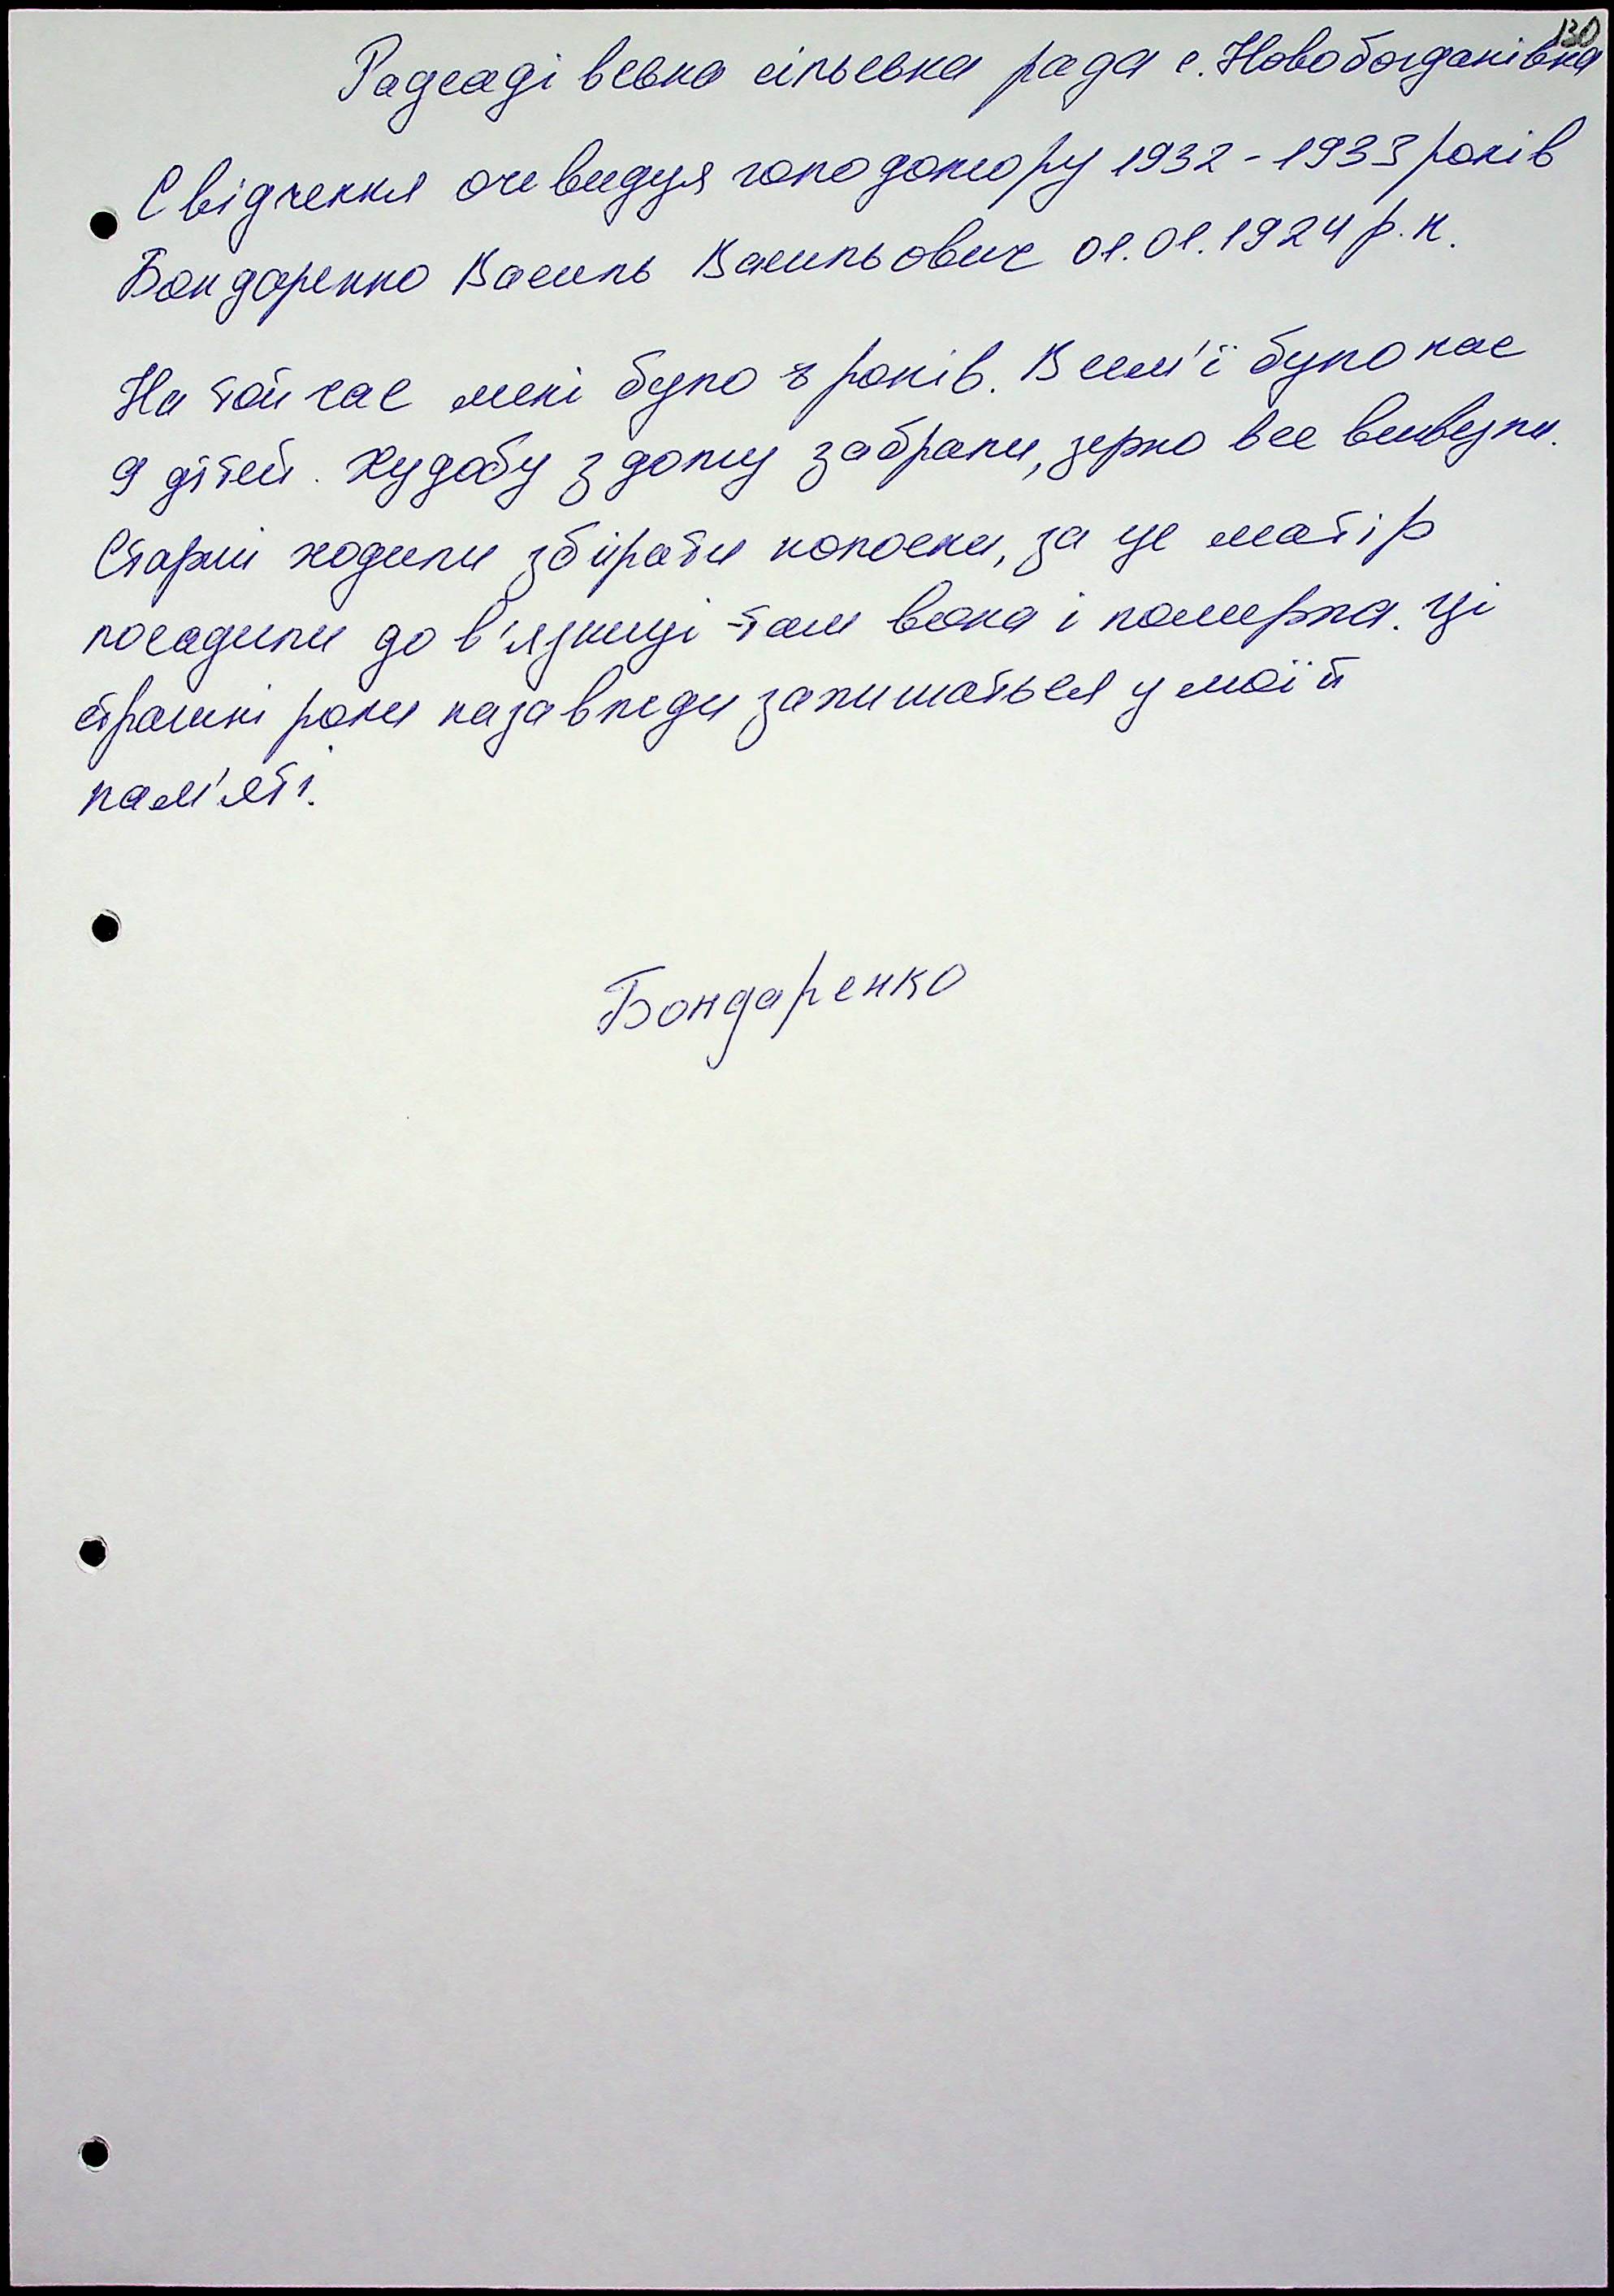 130
Радсадівська сільська рада с. Новобогданівка
Свідчення очевидця голодомору 1932-1933 років
Бондаренко Василь Васильович 01.01.1924 р.н.
На той час мені було 8 років. В сім'ї було нас
9 дітей. Худобу з дому забрали, зерно все вивезли.
Старші ходили збірати колоски, за це матір
посадили до в'язниці - там вона і померла. Ці
страшні роки назавжди залишаться у моїй
пам'яті.
Бондаренко